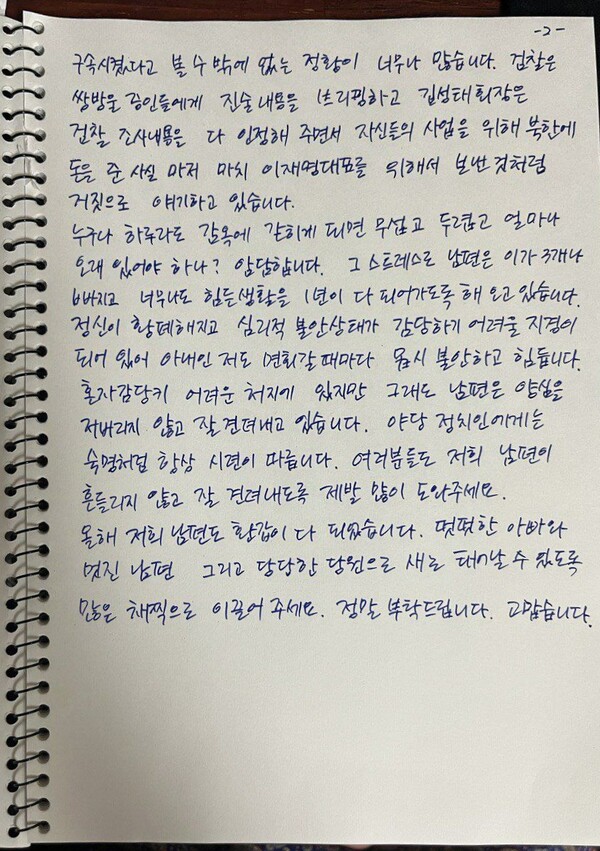 -2-
구속시켰다고 볼 수 밖에 없는 정황이 너무나 많습니다. 검찰은
쌍방울 증인들에게 진술내용을 브리핑하고 김성태회장은
검찰 조사내용을 다 인정해 주면서 자신들의 사업을 위해 북한에
돈을 준 사실 마저 마치 이재명대표를 위해서 보낸 것처럼
거짓으로 얘기하고 있습니다.
누구나 하루라도 감옥에 갇히게 되면 무섭고 두렵고 얼마나
오래 있어야 하나? 암담합니다. 그 스트레스로 남편은 이가 3개나
빠지고 너무나도 힘든생활을 1년이 다 되어가도록 해 오고 있습니다.
정신이 황폐해지고 심리적 불안상태가 감당하기 어려울 지경이
되어 있어 아내인 저도 면회갈 때마다 몹시 불안하고 힘듭니다.
혼자감당키 어려운 처지에 있지만 그래도 남편은 양심을
저버리지 않고 잘 견뎌내고 있습니다. 야당 정치인에게는
숙명처럼 항상 시련이 따릅니다. 여러분들도 저희 남편이
흔들리지 않고 잘 견뎌내도록 제발 많이 도와주세요.
올해 저희 남편도 환갑이 다 되었습니다. 떳떳한 아빠와
멋진 남편 그리고 당당한 당원으로 새로 태어날 수 있도록
많은 채찍으로 이끌어 주세요. 정말 부탁드립니다. 고맙습니다.